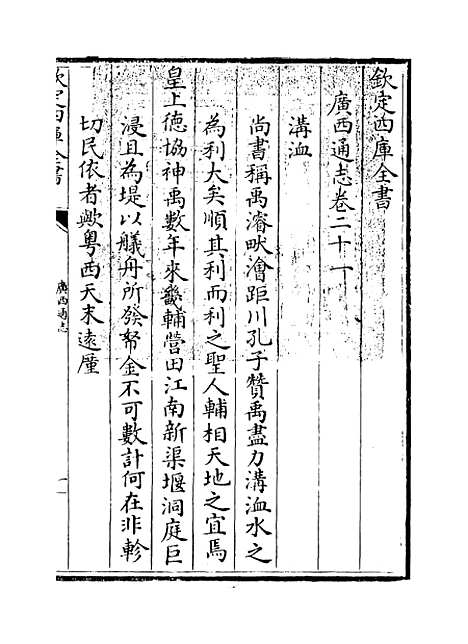 欽定四庫全書
廣西通志卷二十一
溝洫
尚書稱禹濬畎澮距川孔子贊禹盡力溝洫水之
為利大矣順其利而利之聖人輔相天地之宜焉
皇上德協神禹數年來畿輔營田江南新渠堰洞庭巨
浸且為堤以艤舟所發帑金不可數計何在非軫
切民依者歟粤西天末遠厪
欽定四庫全書
廣西通志
一